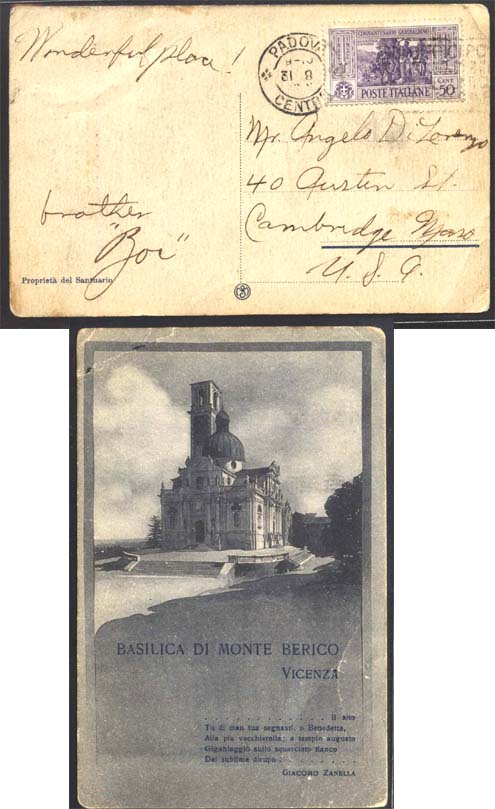 Wonderful place!
brother
"Boi"
Proprietà del Santuario
PADOVA
CENTR
CINQUANTENARIO GARIBALDINO
POSTE ITALIANE
CENT
50
Mr. Angelo Di Lorenzo
40 Austin St.
Cambridge Mass
U. S. A.
BASILICA DI MONTE BERICO
VICENZA
. . . . . . . . . . . . . Il sito
Tu di man tua segnasti, o Benedetta,
Alla pia vecchierella; e tempio augusto
Giganteggiò sullo squarciato fianco
Del sublime dirupo . . . . . . . . . .
GIACOMO ZANELLA